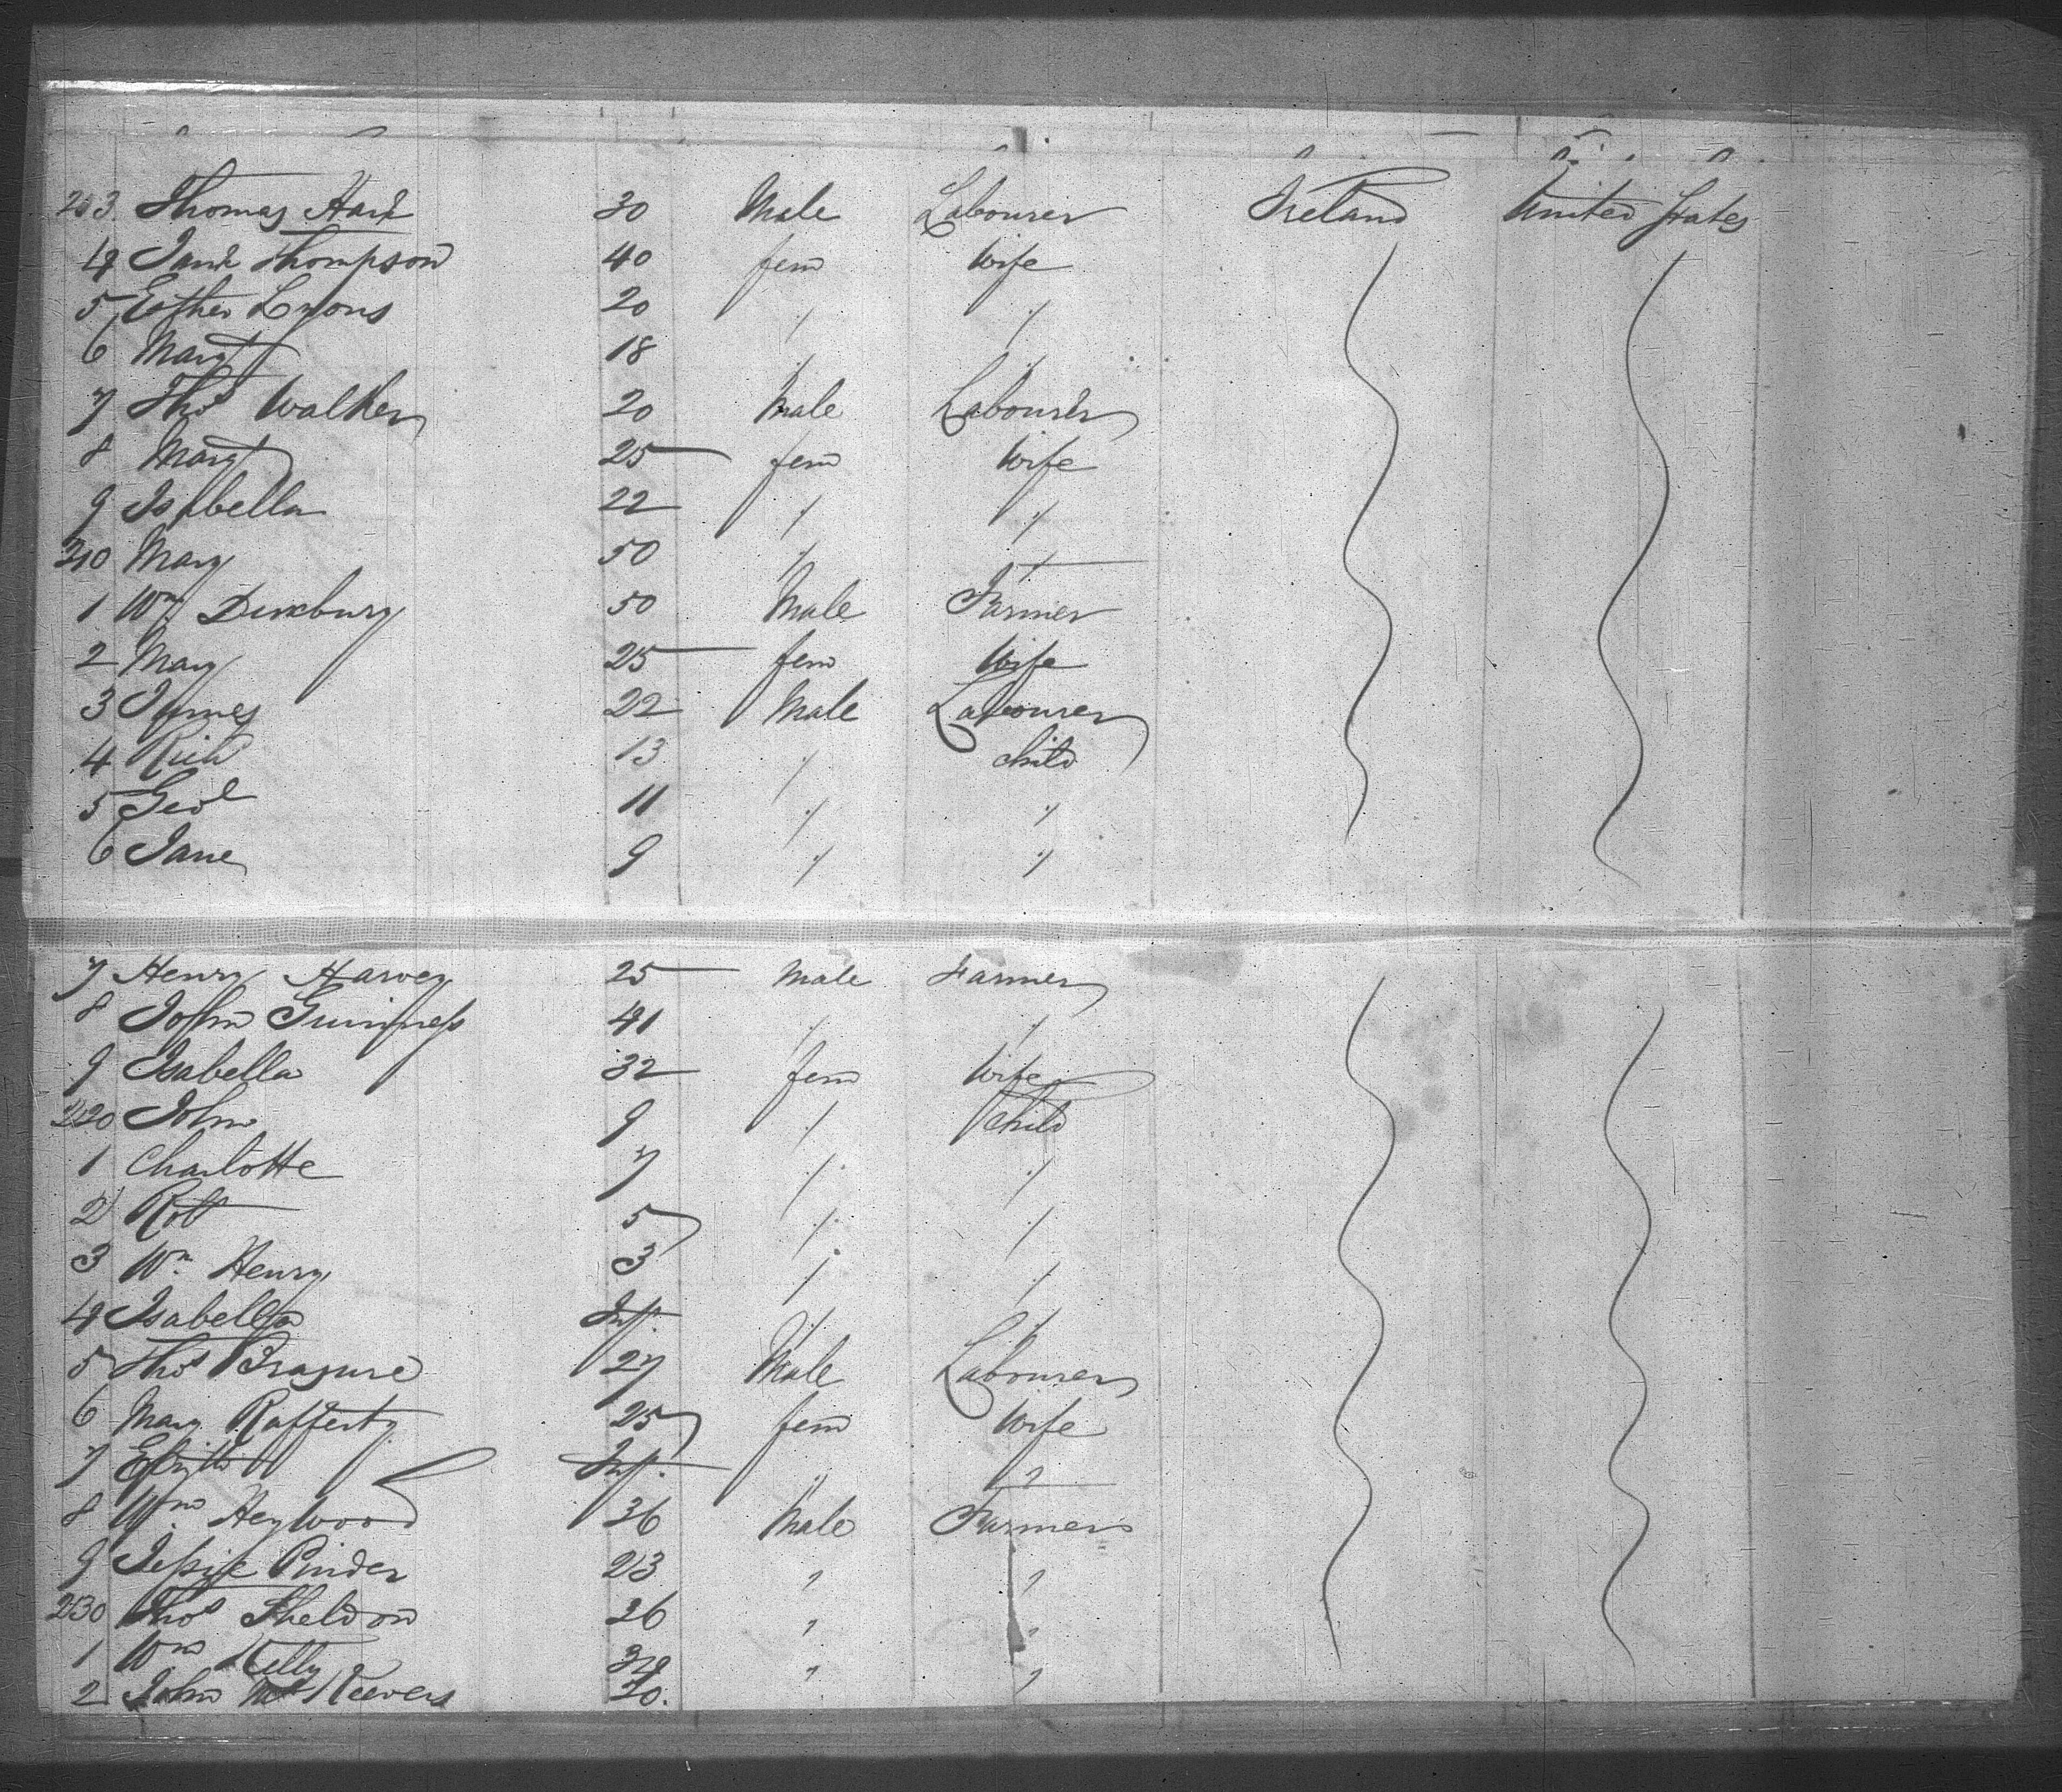 203 Thomas Hark 30 Male Labourer Ireland United States
4 Jane Thompson 40 fem Wife
5 Esther Lyons 20 " "
6 Margt 18 " "
7 Thos Walker 20 Male Labourer
8 Margt 25 fem Wife
9 Isabella 22 " "
210 Mary 50 " "
1 Wm Duxbury 50 Male Farmer
2 Mary 25 fem Wife
3 James 22 Male Labourer
4 Rich 13 " child
5 Geo 11 " "
6 Jane 9 " "
7 Henry Harvey 25 Male Farmer
8 John Guinness 41 " "
9 Isabella 32 fem Wife
220 John 9 " Child
1 Charlotte 7 " "
2 Robt 5 " "
3 Wm Henry 3 " "
4 Isabella Inf. " "
5 Thos Brasure 27 Male Labourer
6 Mary Rafferty 25 fem Wife
7 Inf. " "
8 Wm Heywood 36 Male Farmer
9 Jessie Pinder 23 " "
230 Thos Sheldon 26 " "
1 Wm Kelly " "
2 John Mc Keevers 20.